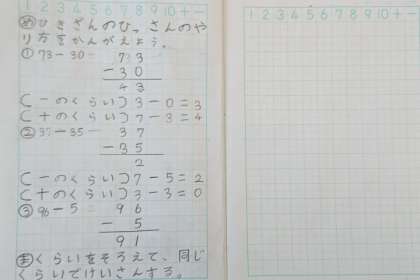 1 2 3 4 5 6 7 8 9 10 + −
め ひきざんのひっさんのや
り方をかんがえよう。
① 73−30= 73
−30
43
〔一のくらい〕3−0=3
〔十のくらい〕7−3=4
② 37−35= 37
−35
2
〔一のくらい〕7−5=2
〔十のくらい〕3−3=0
③ 96−5= 96
− 5
91
ま くらいをそろえて、同じ
くらいでけいさんする。
1 2 3 4 5 6 7 8 9 10 + −